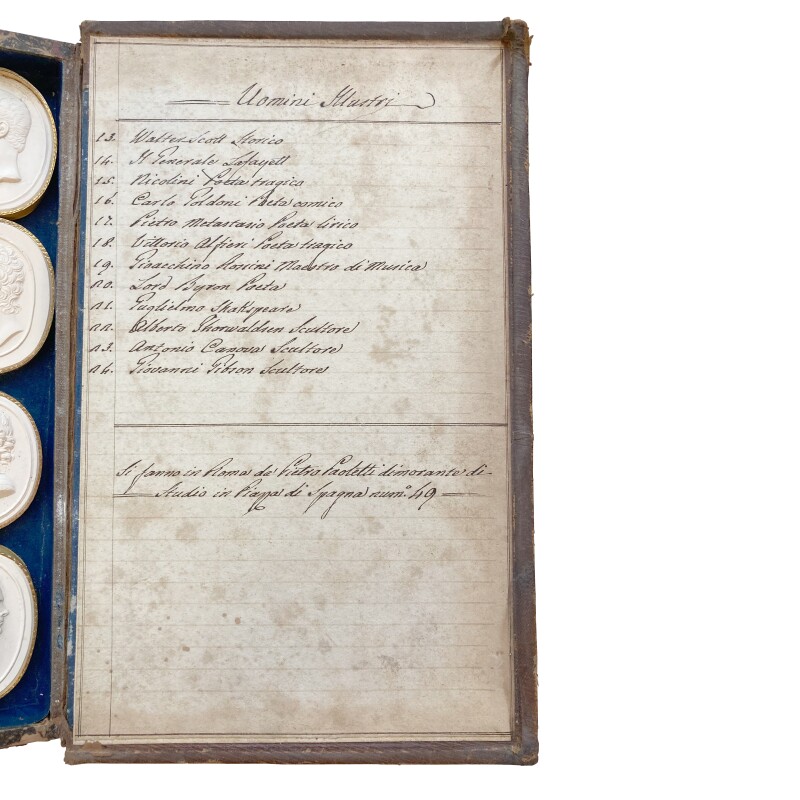 Uomini Illustri
13. Walter Scott Storico
14. Il Generale Lafayett
15. Nicolini Poeta tragico
16. Carlo Goldoni Poeta comico
17. Pietro Metastasio Poeta lirico
18. Vittorio Alfieri Poeta tragico
19. Gioacchino Rossini Maestro di Musica
20. Lord Byron Poeta
21. Guglielmo Shakspeare
22. Alberto Thorwaldsen Scultore
23. Antonio Canova Scultore
24. Giovanni Gibson Scultore
Si fanno in Roma da Pietro Paoletti dimorante di
Studio in Piazza di Spagna num.º 49